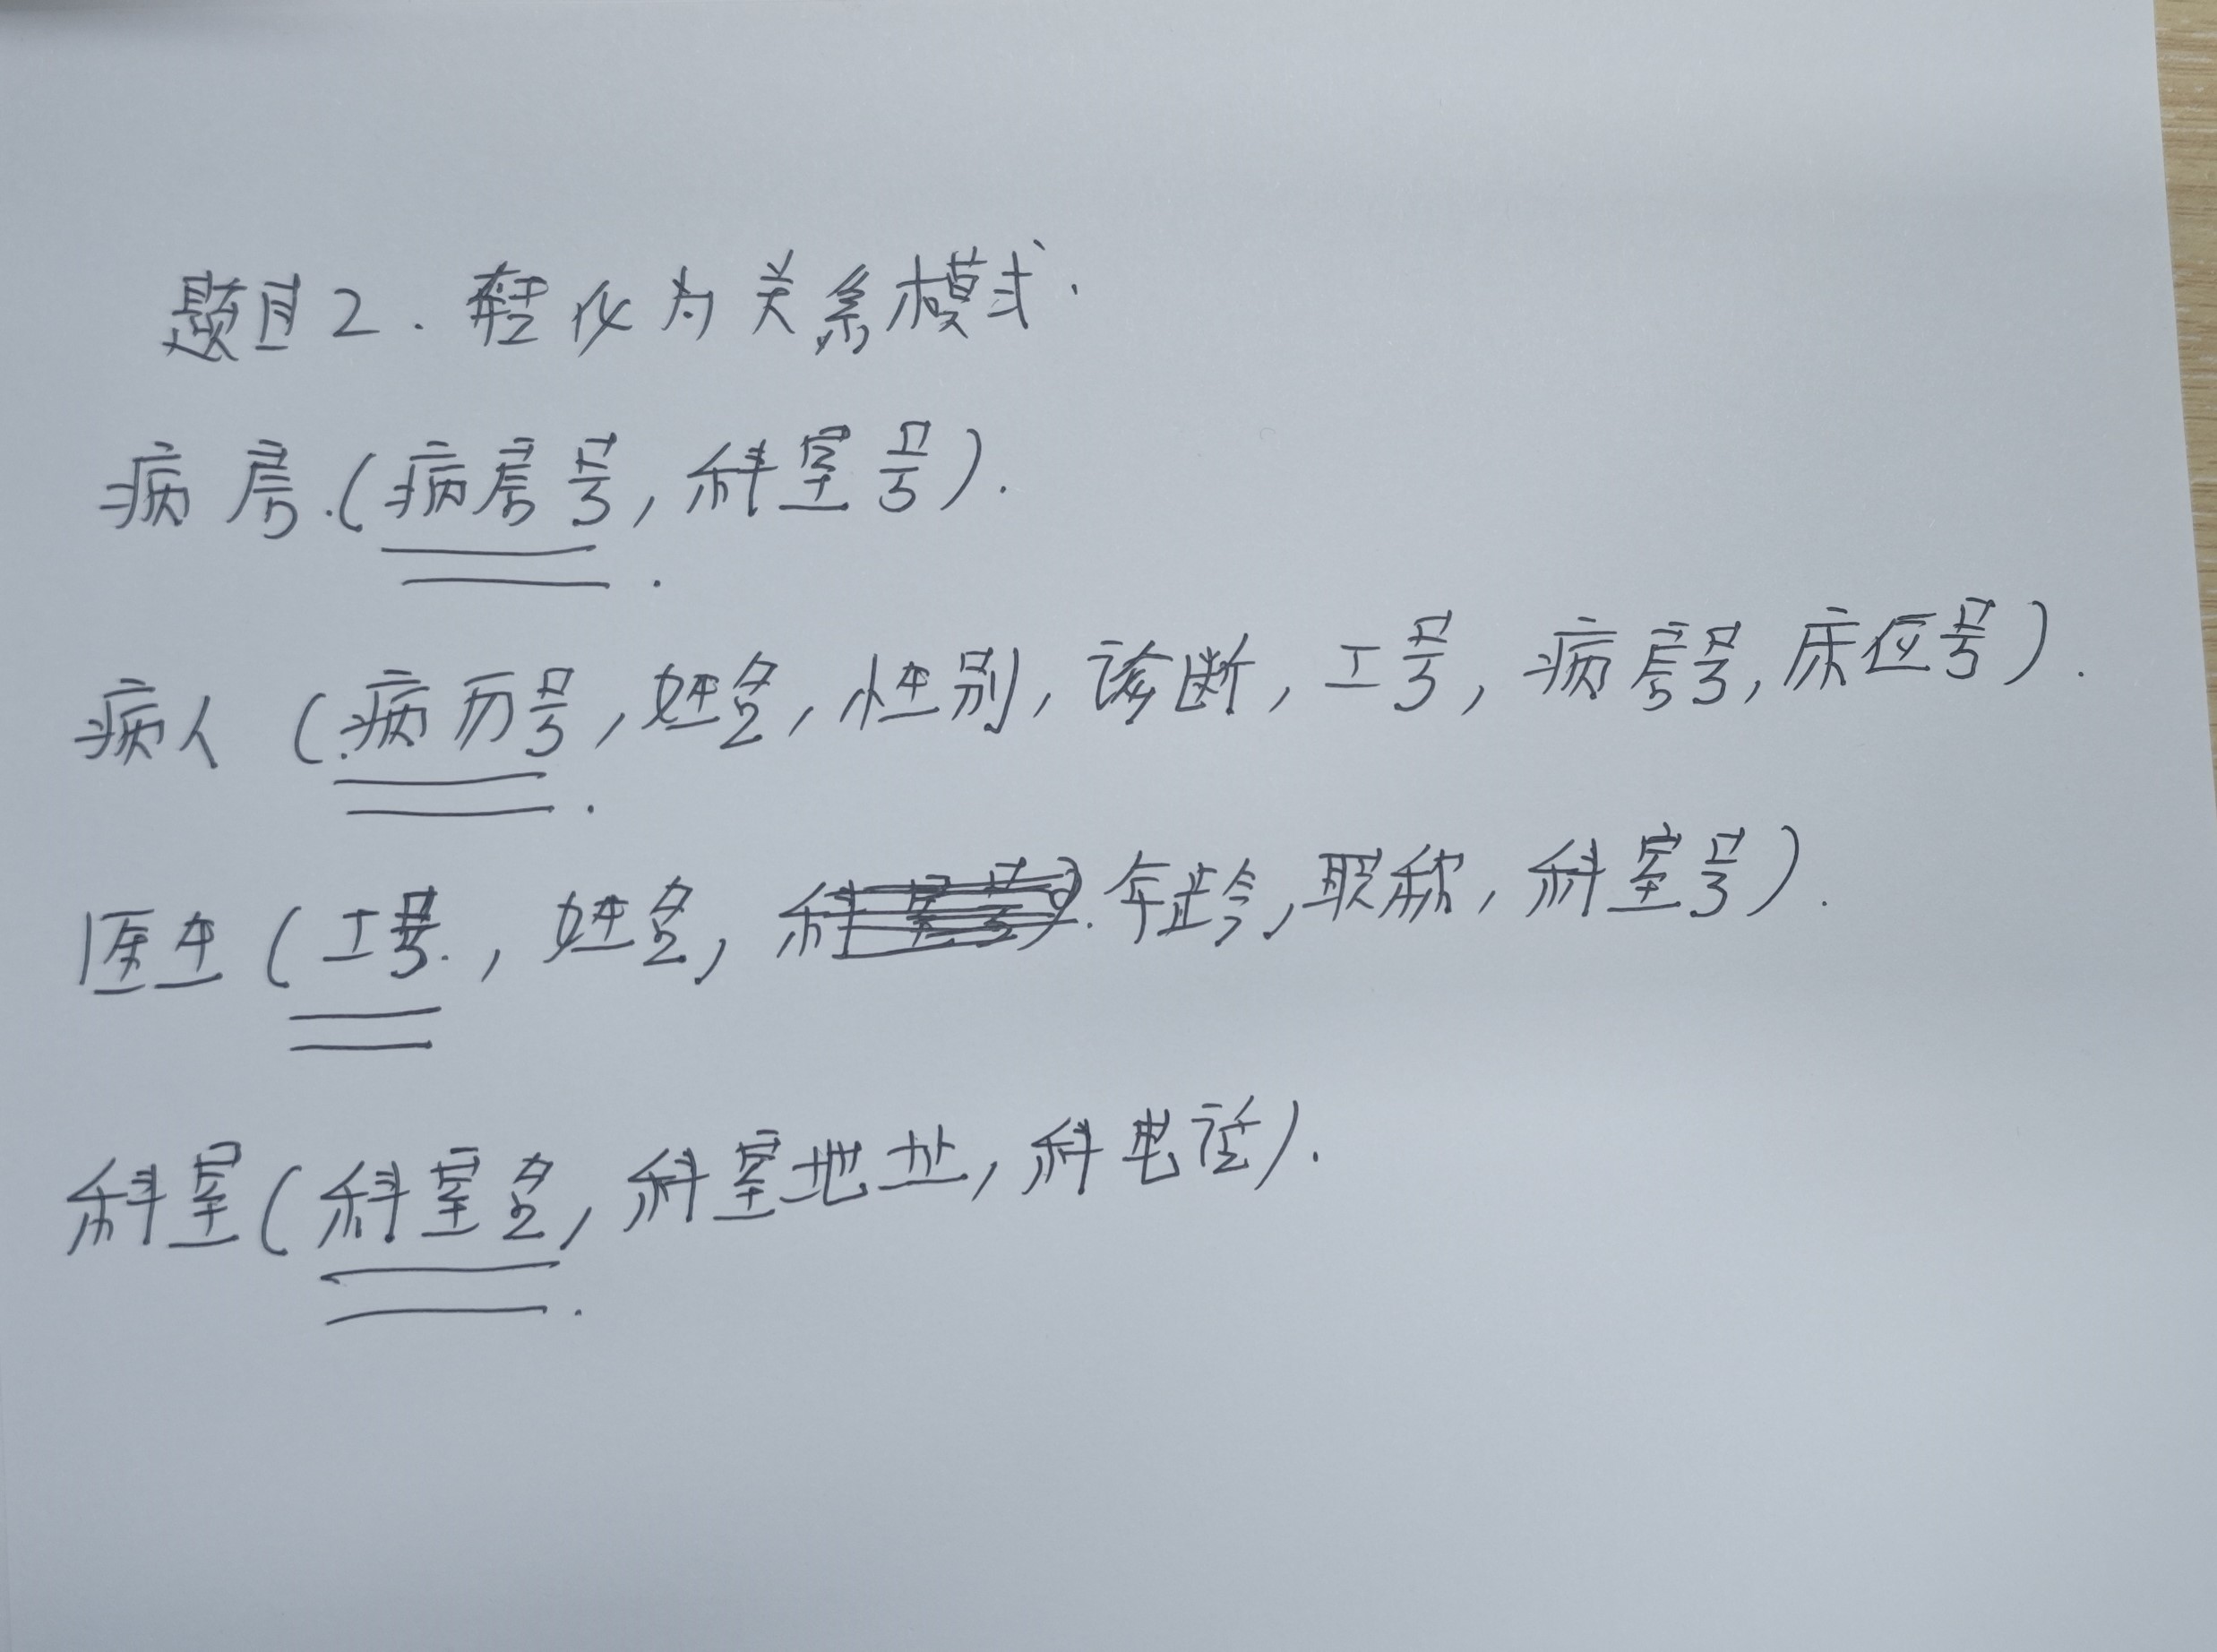 题目2.转化为关系模式.
病房.(病房号,科室号).
病人(病历号,姓名,性别,诊断,工号,病房号,床位号).
医生(工号.,姓名,年龄,职称,科室号).
科室(科室名,科室地址,科电话).